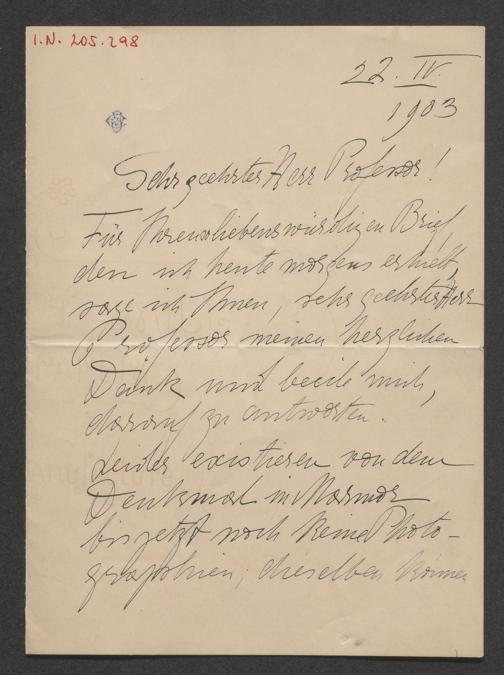 I.N. 205.298
22. IV.
1903
Sehr geehrter Herr Professor!
Für Ihren liebenswürdigen Brief,
den ich heute morgens erhielt,
sage ich Ihnen, sehr geehrter Herr
Professor meinen herzlichen
Dank und beeile mich,
darauf zu antworten.
Leider existieren von dem
Denkmal in Marmor
bis jetzt noch keine Photo-
graphien; dieselben können